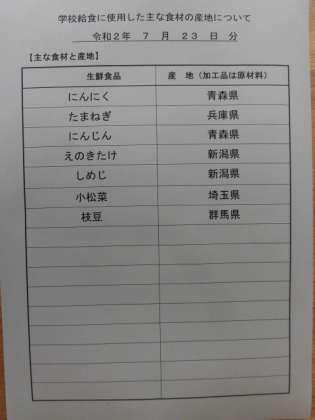 学校給食に使用した主な食材の産地について
令和２年 ７ 月 ２３ 日 分
【主な食材と産地】
生鮮食品 産 地（加工品は原材料）
にんにく 青森県
たまねぎ 兵庫県
にんじん 青森県
えのきたけ 新潟県
しめじ 新潟県
小松菜 埼玉県
枝豆 群馬県